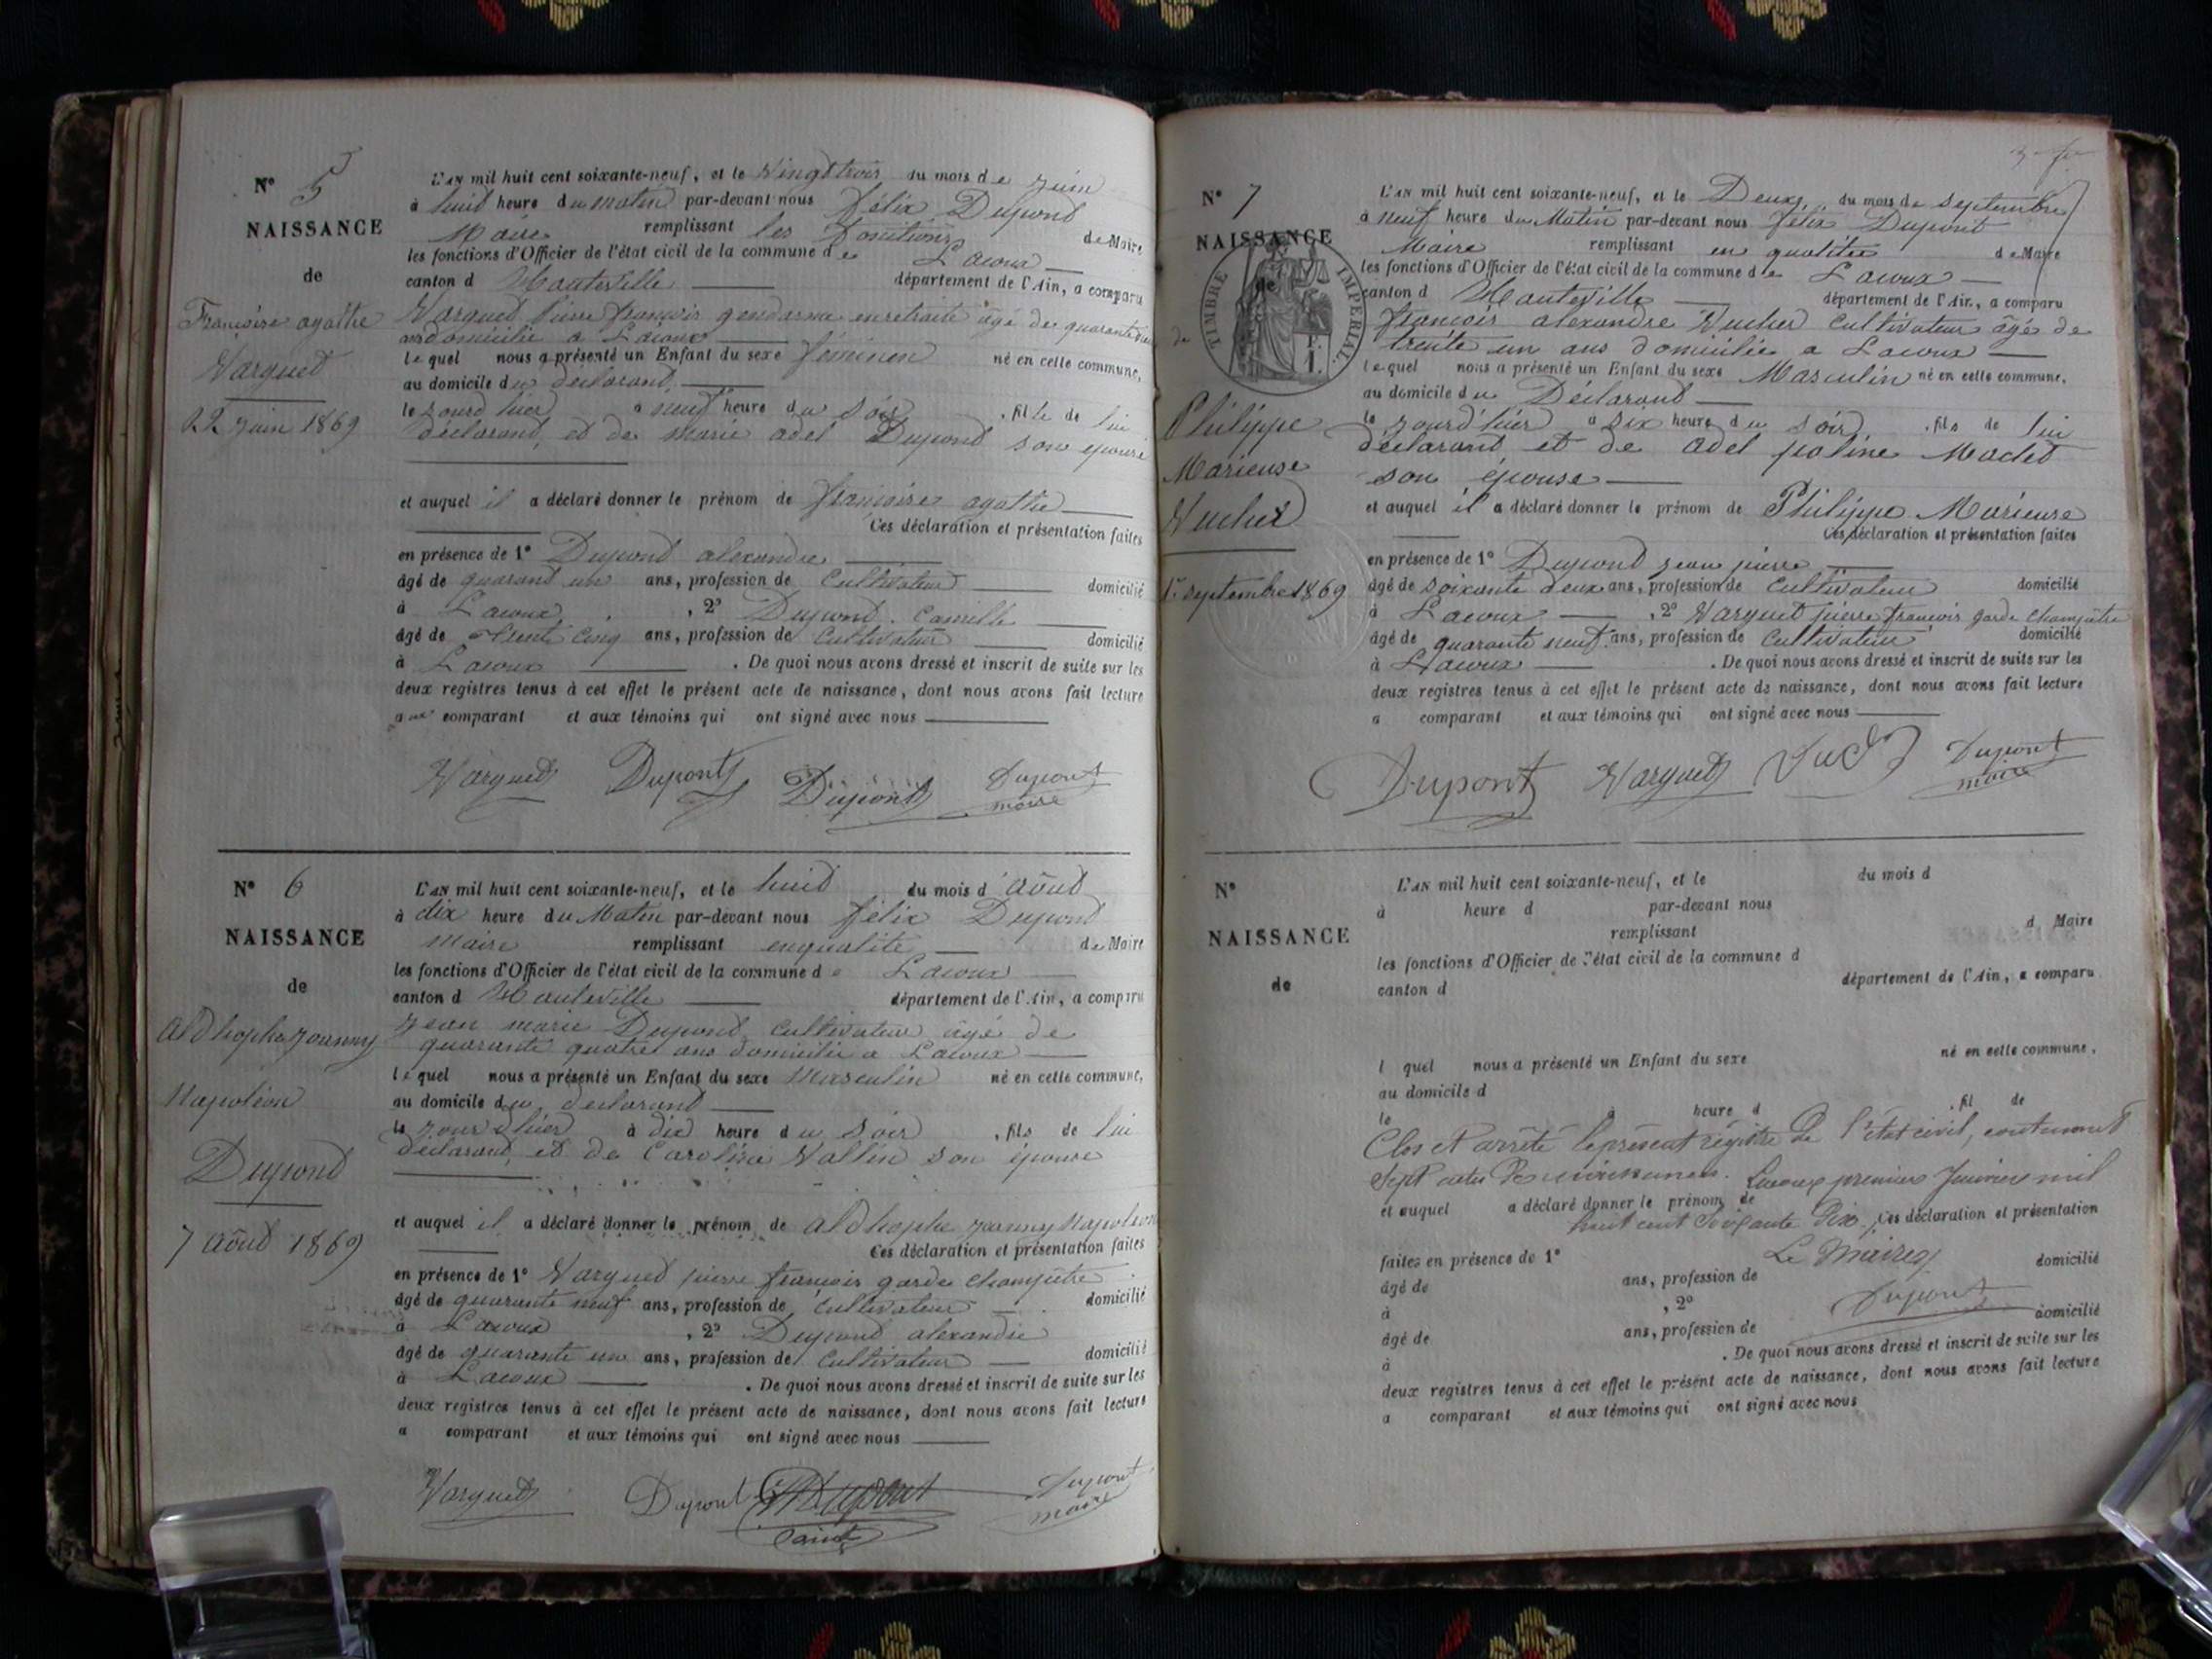 N° 5
NAISSANCE
de
Françoise agathe
Varguet
22 juin 1869
L'AN mil huit cent soixante-neuf, et le Vingt trois du mois de juin
à huit heure du matin par-devant nous félix Dupond
Maire remplissant les fonctions de Maire
les fonctions d'Officier de l'état civil de la commune de Lacoux
canton d Hauteville département de l'Ain, a comparu
Varguet pierre françois gendarme en retraite âgé de quarante
ans domicilié a Lacoux
le quel nous a présenté un Enfant du sexe féminin né en cette commune,
au domicile du déclarant
le jourd hier à neuf heure du soir , fille de lui
déclarant, et de marie adel Dupond son épouse
et auquel il a déclaré donner le prénom de françoise agathe
Ces déclaration et présentation faites
en présence de 1° Dupond alexandre
âgé de quarant un ans, profession de Cultivateur domicilié
à Lacoux , 2° Dupond Camille
âgé de trente cinq ans, profession de Cultivateur domicilié
à Lacoux . De quoi nous avons dressé et inscrit de suite sur les
deux registres tenus à cet effet le présent acte de naissance, dont nous avons fait lecture
aux comparant et aux témoins qui ont signé avec nous
Varguet Dupont Dupont Dupont
maire
N° 6
NAISSANCE
de
aldhophe joanny
Napoléon
Dupond
7 août 1869
L'AN mil huit cent soixante-neuf, et le huit du mois d' août
à dix heure du Matin par-devant nous félix Dupond
Maire remplissant enqualité de Maire
les fonctions d'Officier de l'état civil de la commune de Lacoux
canton d Hauteville département de l'Ain, a comparu
jean marie Dupond cultivateur âgé de
quarante quatre ans domicilié a Lacoux
le quel nous a présenté un Enfant du sexe Masculin né en cette commune,
au domicile du déclarant
le jour d'hier à dix heure du soir , fils de lui
déclarant, et de Caroline Vallin son épouse
et auquel il a déclaré donner le prénom de aldhophe joanny Napoléon
Ces déclaration et présentation faites
en présence de 1° Varguet pierre françois garde champêtre
âgé de quarante neuf ans, profession de cultivateur domicilié
à Lacoux , 2° Dupond alexandre
âgé de quarante un ans, profession de Cultivateur domicilié
à Lacoux . De quoi nous avons dressé et inscrit de suite sur les
deux registres tenus à cet effet le présent acte de naissance, dont nous avons fait lecture
a comparant et aux témoins qui ont signé avec nous
Varguet Dupont Dupont Dupont
maire
N° 7
NAISSANCE
de
TIMBRE IMPERIAL
Philippe
Marieuse
Vucher
1er septembre 1869
L'AN mil huit cent soixante-neuf, et le Deux du mois de septembre
à neuf heure du Matin par-devant nous félix Dupont
Maire remplissant en qualitée de Maire
les fonctions d'Officier de l'état civil de la commune de Lacoux
canton d Hauteville département de l'Ain, a comparu
françois alexandre Vucher cultivateur âgé de
trente un ans domicilié a Lacoux
le quel nous a présenté un Enfant du sexe Masculin né en cette commune,
au domicile du Déclarant
le jourd'hier à six heure du soir , fils de lui
déclarant et de adel poline Maclet
son épouse
et auquel il a déclaré donner le prénom de Philippe Marieuse
Ces déclaration et présentation faites
en présence de 1° Dupond jean pierre
âgé de soixante deux ans, profession de cultivateur domicilié
à Lacoux , 2° Varguet pierre françois garde champêtre
âgé de quarante neuf ans, profession de Cultivateur domicilié
à Lacoux . De quoi nous avons dressé et inscrit de suite sur les
deux registres tenus à cet effet le présent acte de naissance, dont nous avons fait lecture
a comparant et aux témoins qui ont signé avec nous
Dupont Varguet Dupont
maire
N°
NAISSANCE
de
L'AN mil huit cent soixante-neuf, et le du mois d
à heure d par-devant nous
remplissant d Maire
les fonctions d'Officier de l'état civil de la commune d
canton d département de l'Ain, a comparu
l quel nous a présenté un Enfant du sexe né en cette commune,
au domicile d
le à heure d , fil de
Clos et arrêté le présent régistre de l'état civil, contenant
Sept actes de naissances. Lacoux premier Janvier mil
et auquel a déclaré donner le prénom de
huit cent soixante Dix. Ces déclaration et présentation
faites en présence de 1° Le Maire domicilié
âgé de ans, profession de
à , 2° Dupont domicilié
âgé de ans, profession de
à . De quoi nous avons dressé et inscrit de suite sur les
deux registres tenus à cet effet le présent acte de naissance, dont nous avons fait lecture
a comparant et aux témoins qui ont signé avec nous